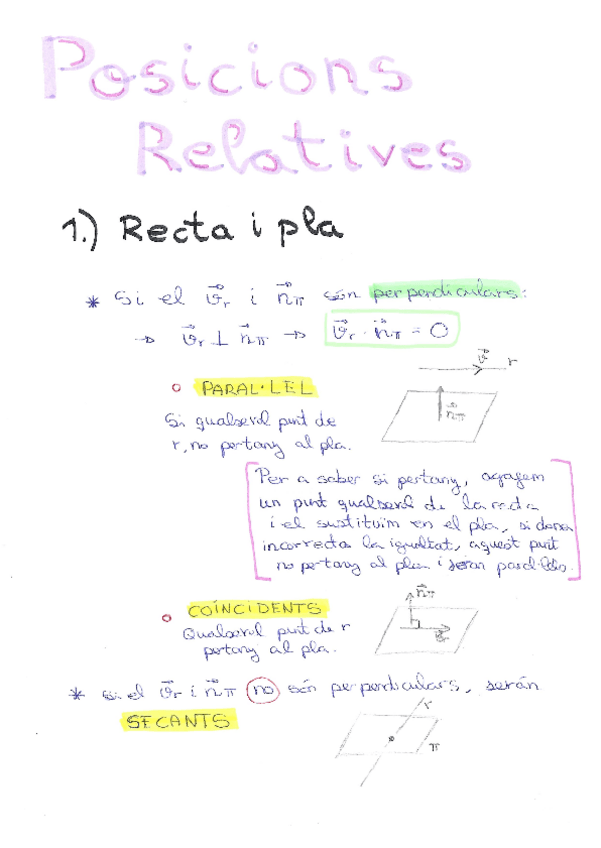 Posicions
Relatives
1.) Recta i pla
* Si el v⃗r i n⃗π són perpendiculars:
→ v⃗r ⊥ n⃗π → v⃗r · n⃗π = 0
v⃗ r
○ PARAL·LEL
n⃗π
Si qualsevol punt de
r, no pertany al pla.
Per a saber si pertany, agafem
un punt qualsevol de la recta
i el sustituïm en el pla, si dona
incorrecta la igualtat, aquest punt
no pertany al pla i seran paral·lels.
n⃗π
○ COÏNCIDENTS
Qualsevol punt de r
pertany al pla.
v⃗r
* si el v⃗r i n⃗π no són perpendiculars, serán
SECANTS
r
π